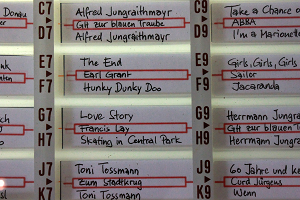 Donau
C7
D7
Alfred Jungraithmayr
GH zur blauen Traube
Alfred Jungraithmayr
C9
D9
Take a Chance o
ABBA
I'm a Marionet
E7
F7
The End
Earl Grant
Hunky Dunky Doo
E9
F9
Girls, Girls, Girls
Sailor
Jacaranda
G7
H7
Love Story
Francis Lay
Skating in Central Park
G9
H9
Herrmann Jungra
GH zur blauen T
Herrmann Jungr
J7
K7
Toni Tossmann
Zum Stadtkrug
Toni Tossmann
J9
K9
60 Jahre und k
Curd Jürgens
Wenn